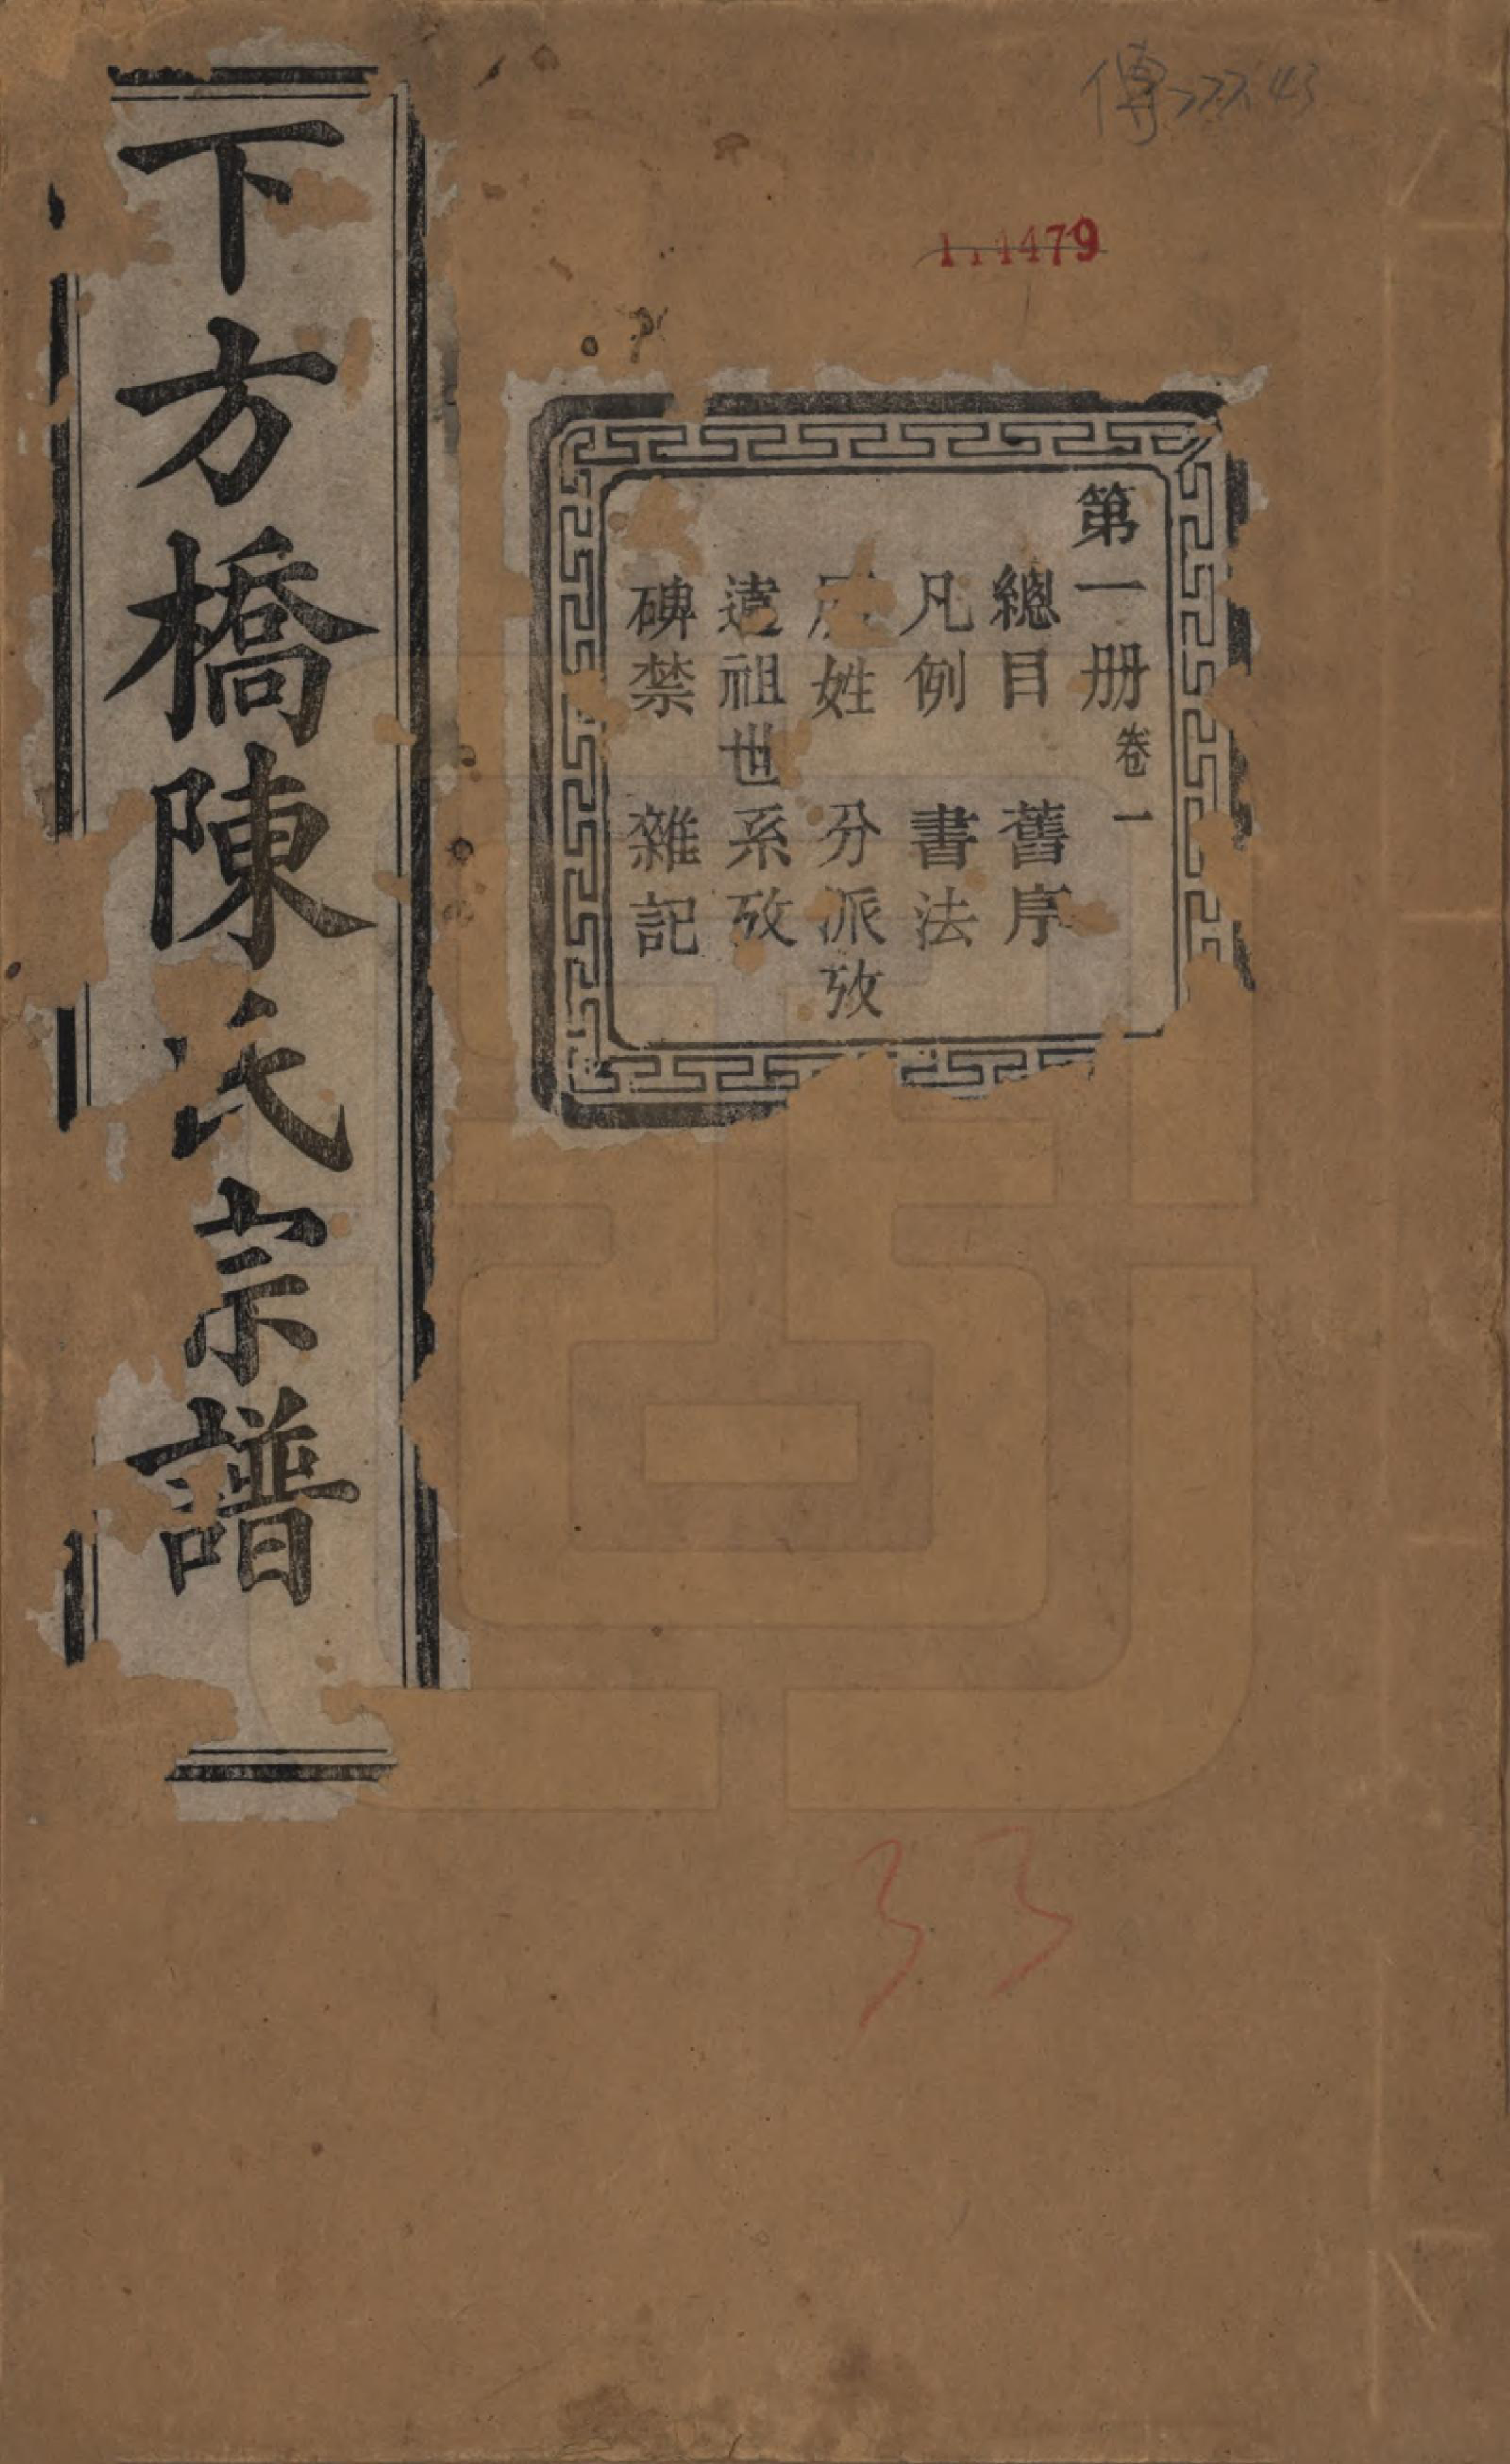 下方橋陳氏宗譜
第一册 卷一
總目 舊序
凡例 書法
姓 分派攷
遠祖世系攷
碑禁 雜記
傳
79
33